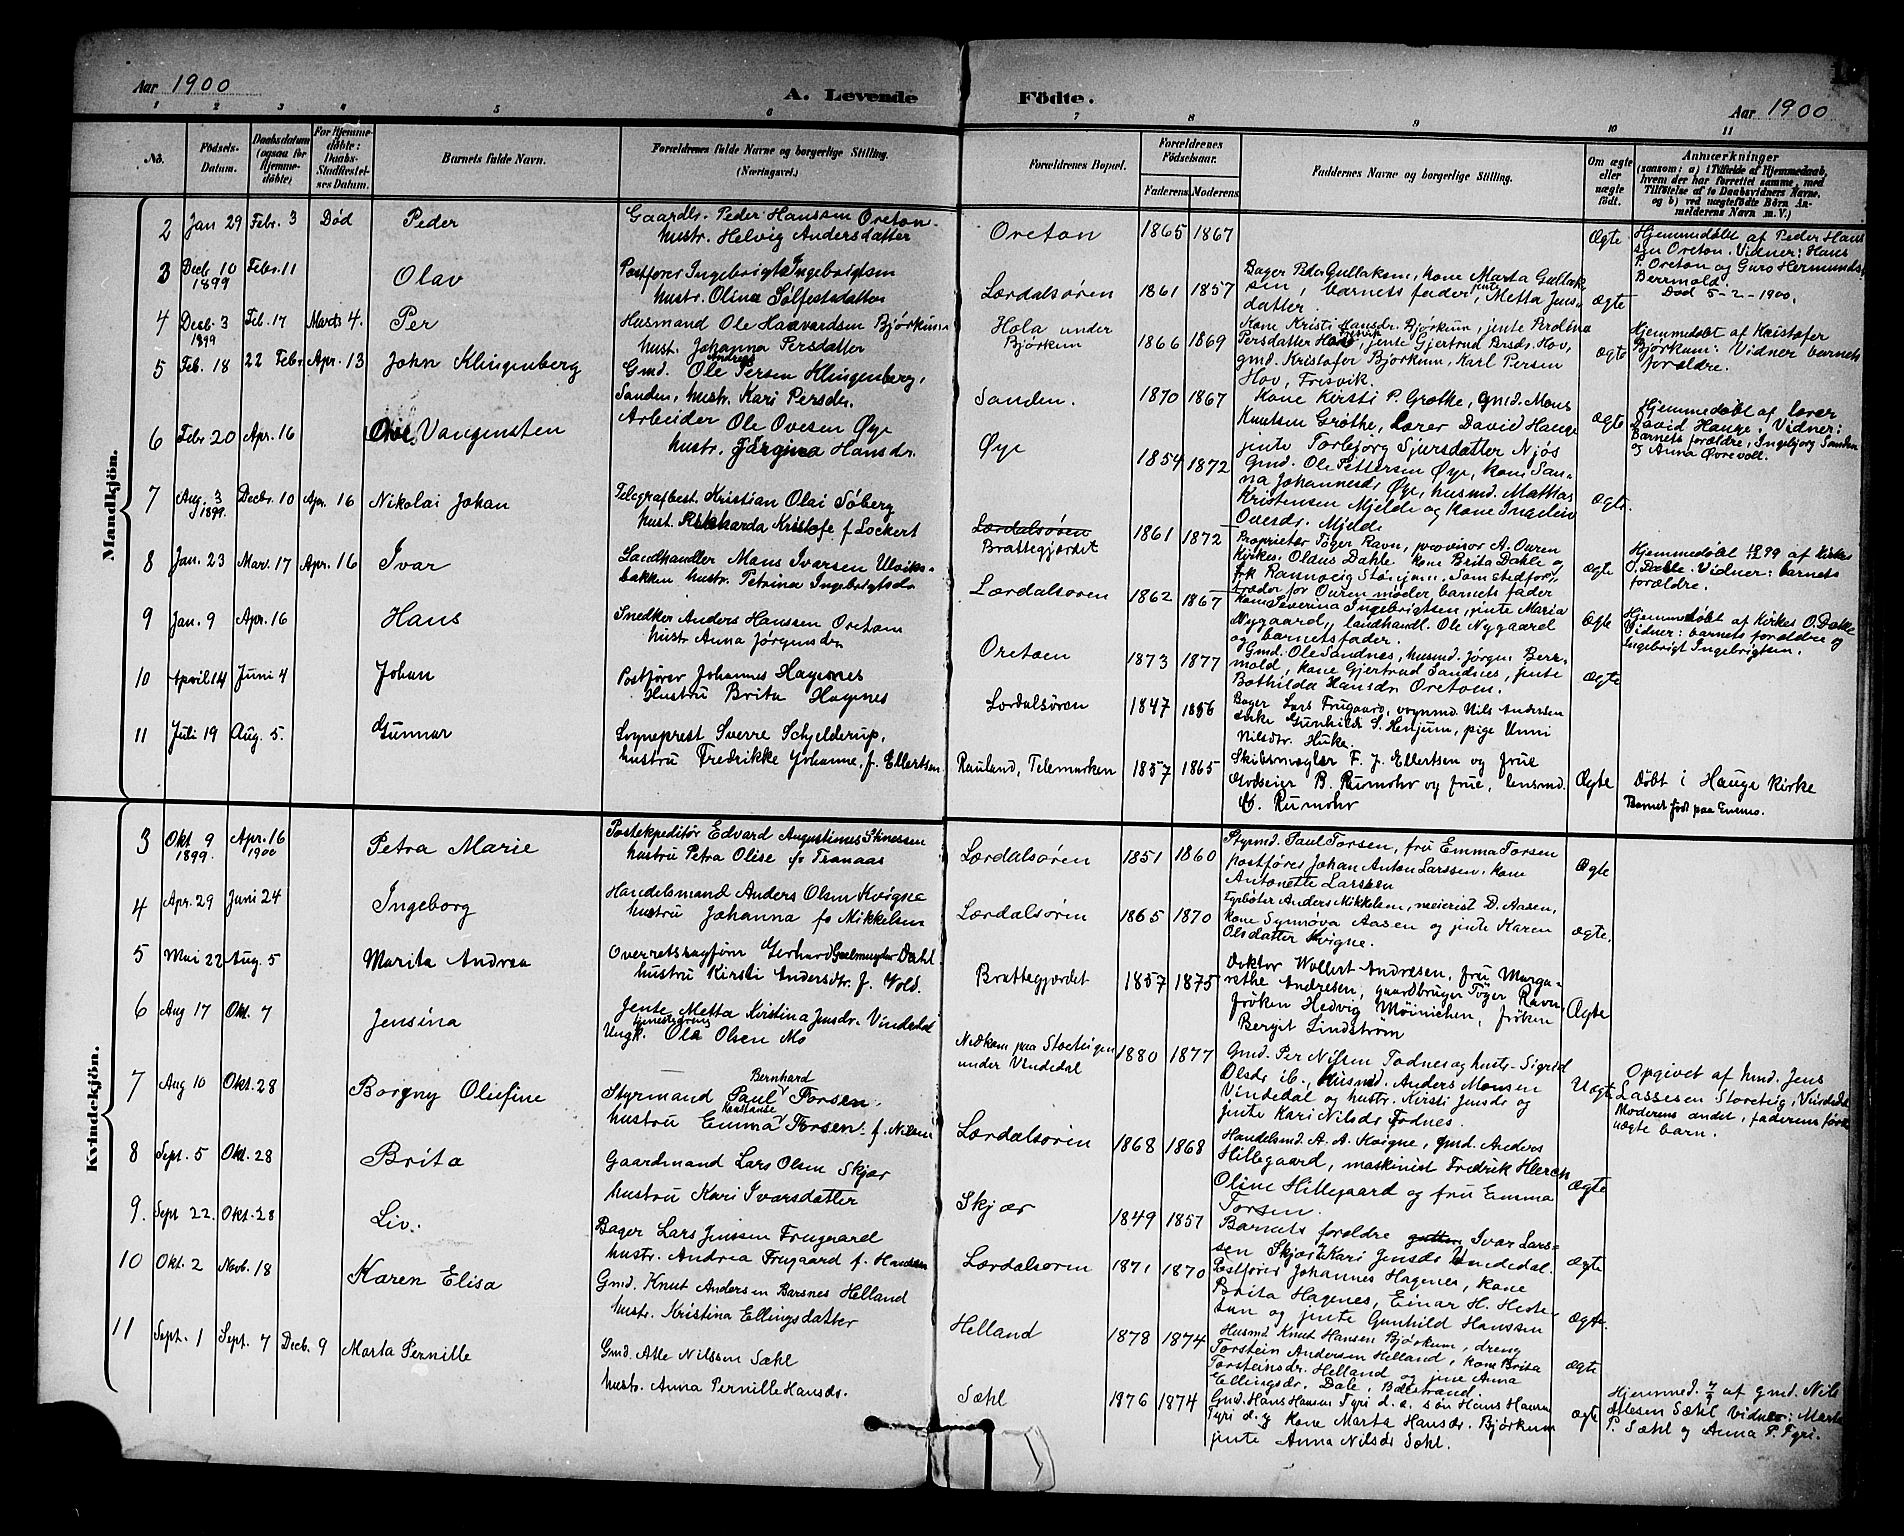 Aar 1900
A. Levende Födte.
Aar 1900
1 2 3 4 5 6 7 8 9 10 11
No.
Födsels-Datum.
Daabsdatum (ogsaa for Hjemmedöbte)
For Hjemmedöbte: Daabs-Stadfæstelses Datum.
Barnets fulde Navn.
Forældrenes fulde Navne og borgerlige Stilling.
(Næringsvei.)
Forældrenes Bopæl.
Forældrenes Födselsaar.
Faderens. Moderens.
Faddernes Navne og borgerlige Stilling.
Om ægte eller uægte födt.
Anmærkninger
(saasom: a) i Tilfælde af Hjemmedaab, hvem der har forrettet samme, med Tilföielse af to Daabsvidners Navne. og b) ved uægtefödte Börn Anmelderens Navn m. V.)
Mandkjön.
2 Jan 29 Febr. 3 Död Peder
Gaardbr. Peder Hanssen Oreton
hustr. Helvig Andersdatter
Oretoen 1865 1867
Ægte
Hjemmedøbt af Peder Hans
sen Oretoen. Vidner: Hans
P. Oretoen og Guro Hermunds
Berrmold.
Død 5-2-1900.
3 Decb 10 1899 Febr. 11 Olav
Postfører Ingebrigt Ingebrigtsen
hustr. Olina Sølfestsdatter
Lærdalsøren 1861 1857
Bager Peder Gullaksen, kone Marta Gullak-
sen, barnets fader, jente Metta Jens-
datter.
Ægte
4 Decb. 3 1899 Feb. 17 Marts 4. Per
Husmand Ole Haavardsen Bjørkum
hust. Johanna Persdatter
Hola under
Bjørkum 1866 1869
Kone Kristi Hansdr. Bjørkum, jente Perolina
Persdatter Hov, jente Gjertrud Hov,
gmd. Kristofer Bjørkum, Karl Persen
Hov, Frisvik.
Ægte
Hjemmedøbt af Kristofer
Bjørkum: Vidner barnets
forældre.
5 Feb. 18 22 Febr. Apr. 13 John Klingenberg
Gmd. Ole Andreas Persen Klingenberg,
Sanden, hustr. Kari Persdr.
Sanden. 1870 1867
Kone Kirsti P. Grøthe, gmd. Mons
Knutsen Grøthe, lærer David Hauge
jente Torbjørg Sjursdatter Njøs
Ægte
Hjemmedøbt af lærer
David Hauge, Vidner:
Barnets forældre, Ingebjorg Sanden
og Anna Øvrevoll.
6 Febr 20 Apr. 16 Ove Vangensten
Arbeider Ole Ovesen Øye
hustr. Jørgina Hansdr.
Øye 1854 1872
Gmd. Ole Pettersen Øye, kone San-
na Johannesdr Øye, husmd. Mathias
Kristensen Mjelde og kone Ingeleiv
Ovesdr. Mjelde
Ægte.
7 Aug. 3 1899. Decbr. 10 Apr. 16 Nikolai Johan
Telegrafbest. Kristian Olai Söberg
hust. Rikharda Kristofe f. Lockert
Lærdalsøren
Brattegjærdet 1861 1872
Proprietær Töger Ravn, provisor A. Ouren
Kirkes. Olaus Dahle kone Brita Dahle og
frk Rannveig Stønjum. Som stedfor-
træder for Ouren møder barnets fader
ægte
Hjemmedøbt af Kirkes
O. Dahle. Vidner: barnets
forældre.
8 Jan. 23 Mar. 17 Apr. 16 Ivar
Landhandler Mons Ivarsen Ulviks-
bakken hustr. Petrina Ingebrigtsdr
Lærdalsøren 1862 1867
Kone Severina Ingebrigtsen, jente Maria
Nygaard, landhandl. Ole Nygaard
og barnets fader.
Ægte
Hjemmedøbt af Kirkes O. Dahle
Vidner: barnets forældre og
Ingebrigt Ingebrigtsen.
9 Jan. 9 Apr. 16 Hans
Snedker Anders Hanssen Oretoen
hustr. Anna Jørgensdr
Oretoen 1873 1877
Gmd. Ole Sandnes, husmd. Jørgen Berr-
mold, kone Gjertrud Sandnes, jente
Bothilda Hansdr Oretoen.
Ægte
10 April 14 Juni 4 Johan
Postfører Johannes Hagenes
Hustru Brita Hagenes
Lærdalsören 1847 1856
Bager Lars Frugaard, vognmd. Nils Andersen
Huke Gunhild S. Henjum, pige Unni
Nilsdtr. Huke.
11 Juli 19 Aug. 5. Gunnar
Sogneprest Sverre Schjelderup,
hustru Fredrikke Johanne, f. Ellertsen
Rauland, Telemarken 1857 1865
Skibsmægler F. J. Ellertsen og frue
Godseier B. Rumohr og frue, lensmd.
C. Rumohr
Ægte
Døbt i Hauge Kirke
Barnet født paa
Kvindekjön.
3 Okt 9 1899. Apr. 16 1900 Petra Marie
Postekspeditør Edvard Augustinus Stinessen
hustru Petra Olise fv Tranaas
Lærdalsören 1851 1860
Styrmd. Paul Torsen, fru Emma Torsen
postfører Johan Anton Larssen, kone
Antonette Larssen
Ægte
4 Apr. 29 Juni 24 Ingeborg
Handelsmand Anders Olsen Kvigne
hustru Johanna fv Mikkelsen
Lærdalsören 1865 1870
Fyrbøter Anders Mikkelsen, meierist D. Aasen,
kone Synnøva Aasen og jente Karen
Olsdatter Kvigne.
ægte.
5 Mai 22 Aug. 5 Marita Andrea
Overretssagfører Gerhard Geelmuyden Dahl
hustru Kirsti Andersdtr. f. Vold.
Brattegjordet 1857 1875
Doktor Wollert Andresen, fru Marga-
rethe Andresen, gaardbruger Töger Ravn
frøken Hedvig Möinichen, frøken
Bergit Lindström
Ægte
6 Aug 17 Okt. 7 Jensina
Jente Metta Kirstina Jensdr. Vindedal
Ungk. tjenestedreng Ola Olsen Mo
Nedkom paa Stocteigen
under Vindedal 1880 1877
Gmd. Per Nilsen Todnes og hustr. Sigrid
Olsdr ib., husmd. Anders Monsen
Vindedal og hustr. Kirsti Jensdr og
jente Kari Nilsdr Todnes.
Uægte
Opgivet af hmd. Jens
Lassesen Storeteig, Vindedal
Moderens andet, faderens første
uægte barn.
7 Aug 10 Okt. 28 Borgny Oliefine
Styrmand Paul Bernhard Torsen.
hustru Emma Konstanse Torsen f. Nilsen
Lærdalsören 1868 1868
Handelsmd. A. A. Kvigne, gmd. Anders
Hillegaard, maskinist Fredrik Klerck
Oline Hillegaard og fru Emma
Torsen.
ægte
8 Sept. 5 Okt. 28 Brita
Gaardmand Lars Olsen Skjær
hustru Kari Ivarsdatter
Skjær 1849 1857
Barnets forældre gutten Ivar Lars-
sen Skjær, Kari Jensdr Vindedal.
ægte
9. Sept 22. Okt. 28 Liv.
Bager Lars Jenssen Frugaard
hustr. Andrea Frugaard f. Hanssen
Lærdalsören 1871 1870
Postfører Johannes Hagenes, kone
Brita Hagenes, Einar H. Heste-
tun og jente Gunhild Hanssen
ægte.
10 Okt. 2 Novb. 18 Karen Elisa
Gmd. Knut Andersen Barsnes Helland
hustr. Kristina Ellingsdatter
Helland 1878 1874
Husmd Knut Hansen Bjørkum, dreng
Torstein Andersen Helland, kone Brita
Torsteinsdr. Helland og jente Anna
Ellingsdr. Dale, Balestrand.
ægte
11 Sept. 1 Sept. 7 Decb. 9 Marta Pernille
Gmd. Atle Nilssen Sæhl
hustr. Anna Pernille Hansdr.
Sæhl 1876 1874
Gmd. Hans Hansen Tyri d. æ. søn Hans Hansen
Tyri d. y. Kone Marta Hansdr. Bjørkum
jente Anna Nilsdr Sæhl.
ægte
Hjemmed. 7/9 af gmd. Nils
Atlesen Sæhl Vidner: Marta
P. Sæhl og Anna P. Tyri.